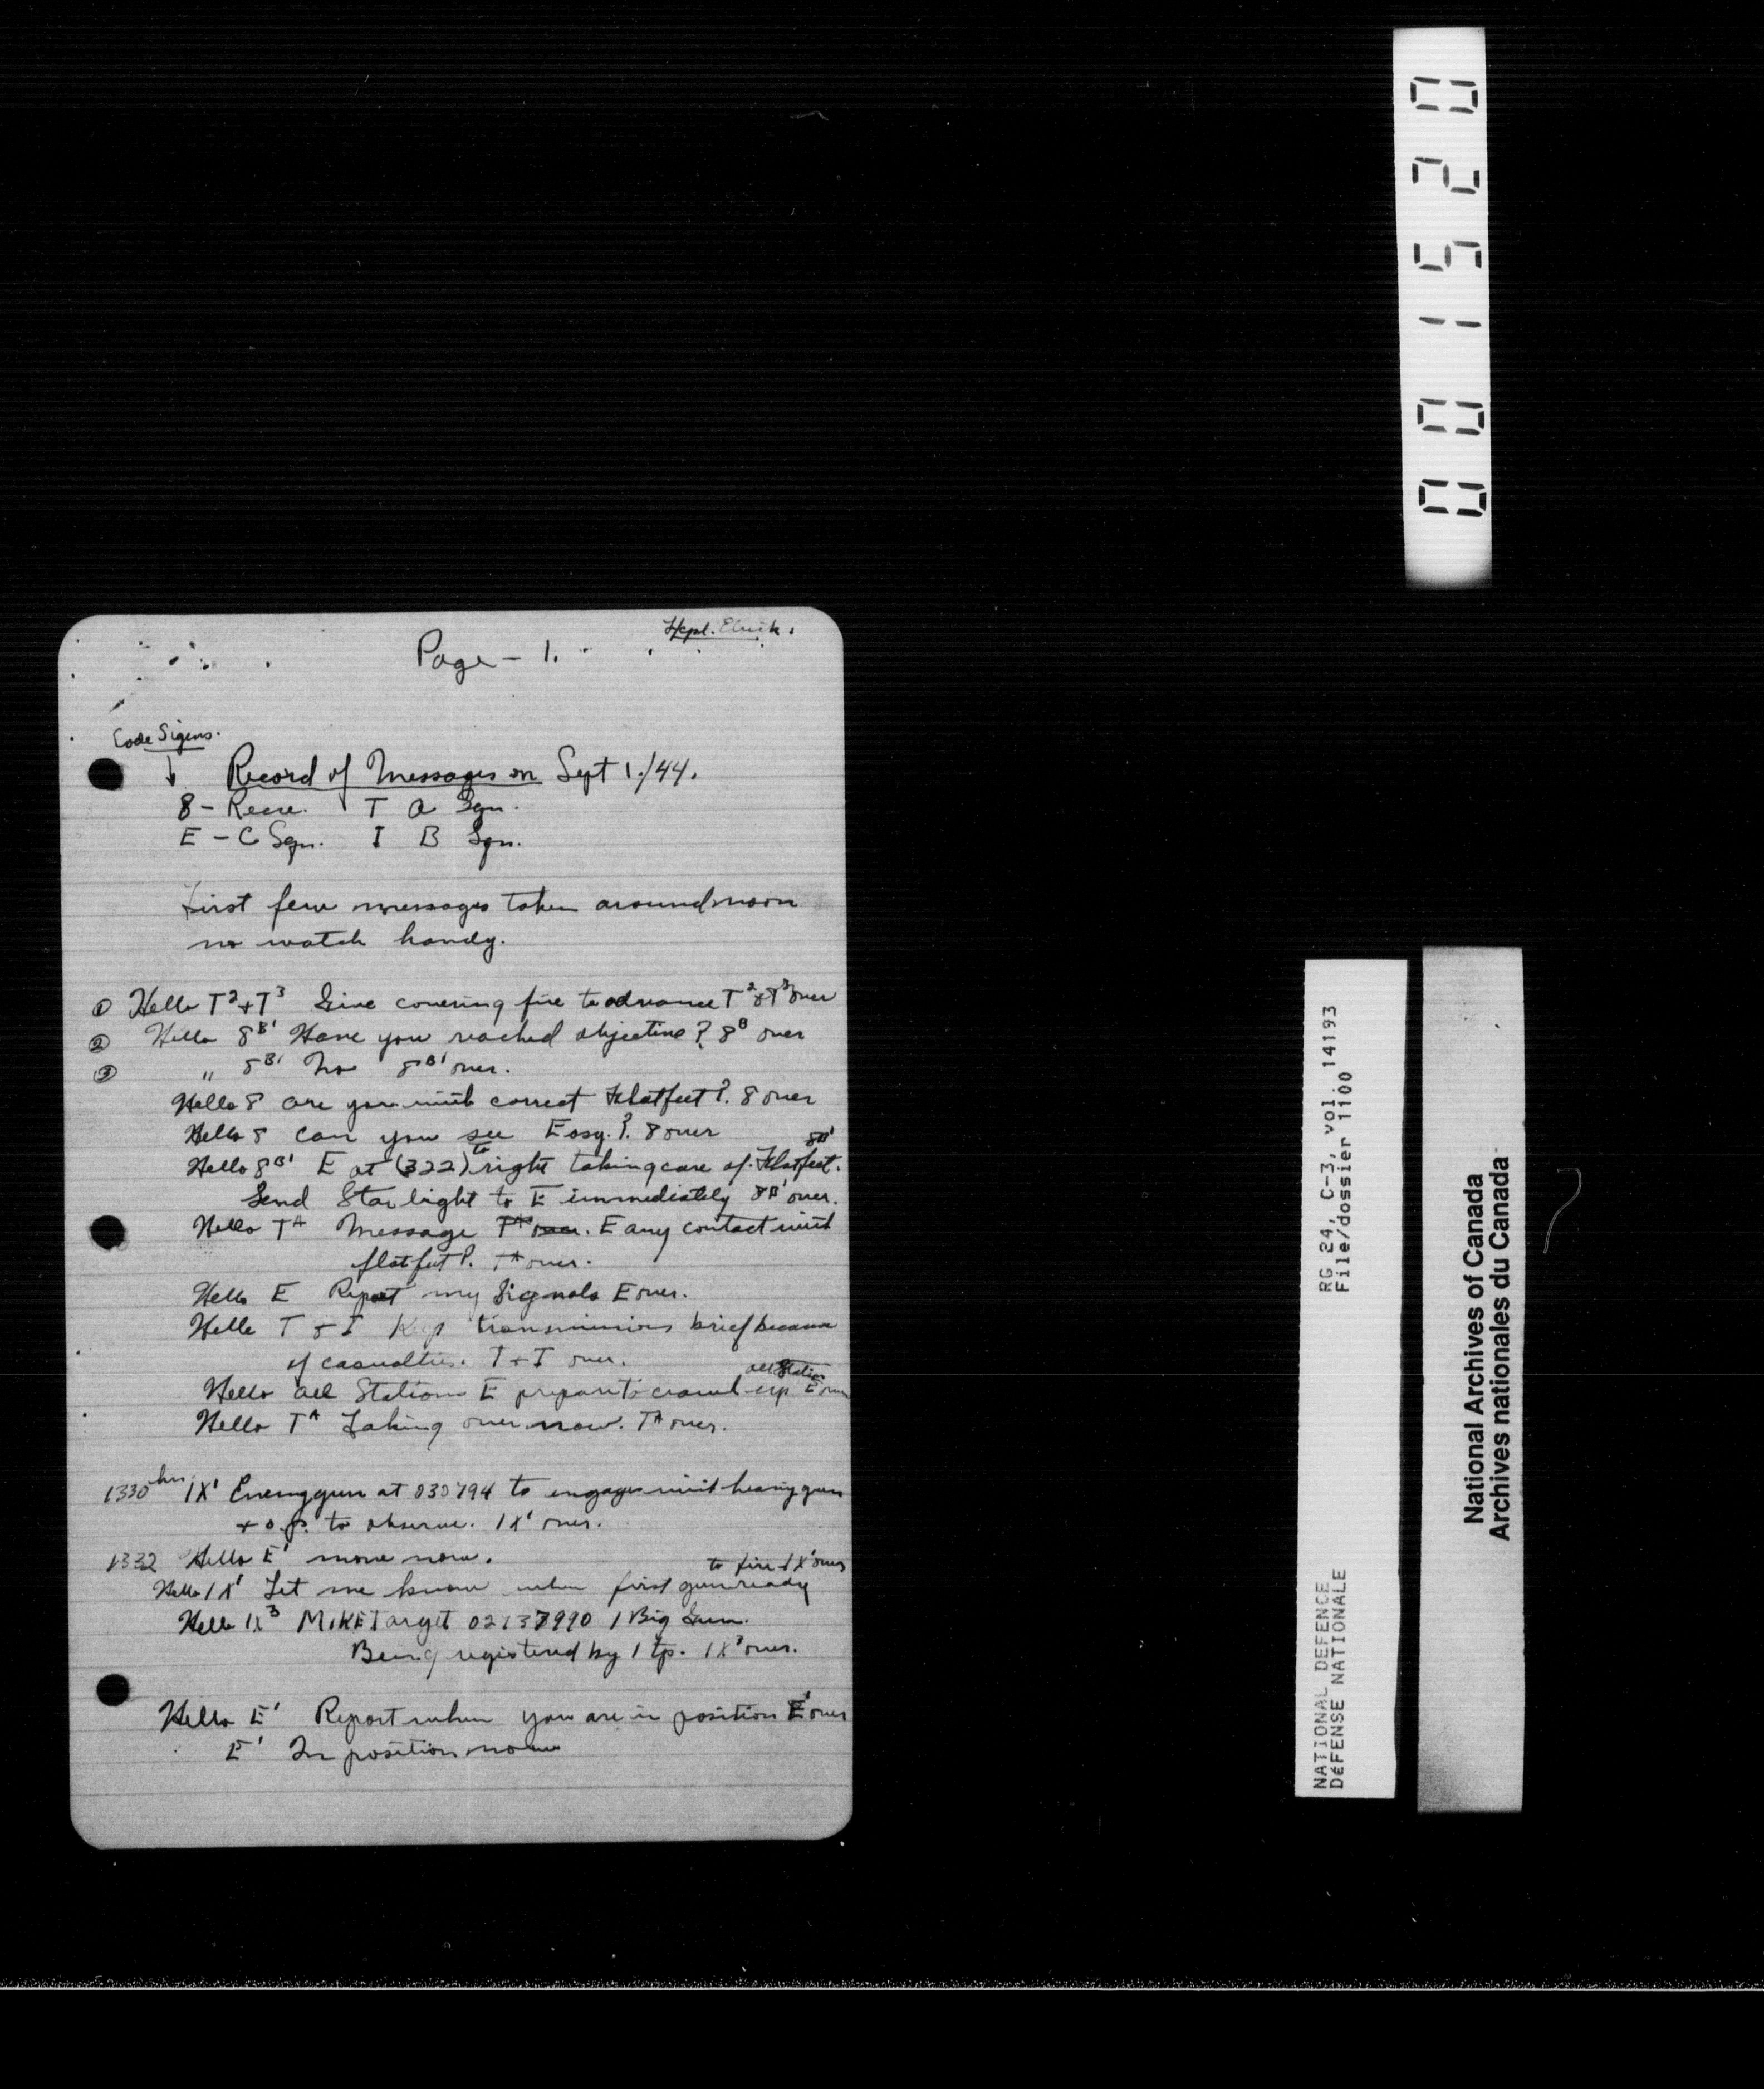 Page - 1.
Code Signs.
Record of Messages on Sept 1./44.
8 - Recce. T A Sqn.
E - C Sqn. I B Sqn.
First few messages taken around noon
no watch handy.
① Hello T²+T³ Give covering fire to advance T²+T³ over
② Hello 8ᴮ¹ Have you reached objective? 8ᴮ over
③ " 8ᴮ¹ No 8ᴮ¹ over.
Hello 8 are you with correct Flatfeet?. 8 over
Hello 8 can you see Easy.?. 8 over
Hello 8ᴮ¹ E at (322) to right taking care of Flatfeet. 8ᴮ¹
Send Starlight to E immediately 8ᴮ¹ over.
Hello Tᴬ Message E any contact with
flatfeet?. Tᴬ over.
Hello E Report my Signals E over.
Hello T + I Keep transmissions brief because
of casualties. T + I over.
Hello all Stations E prepare to crawl up all Stations E over
Hello Tᴬ Taking over now. Tᴬ over.
1330 hrs 1X' Enemy gun at 030794 to engage with heavy gun
+ o.p. to observe. 1X' over.
1332 Hello E' move now.
Hello 1X' Let me know when first gun ready to fire 1X' over
Hello 1X³ MIKE Target 02137990 1 Big Gun.
Being registered by 1 tp. 1X³ over.
Hello E' Report when you are in position E' over
E' In position now
001520
RG 24, C-3, vol. 14193
File/dossier 1100
NATIONAL DEFENCE
DéFENSE NATIONALE
National Archives of Canada
Archives nationales du Canada